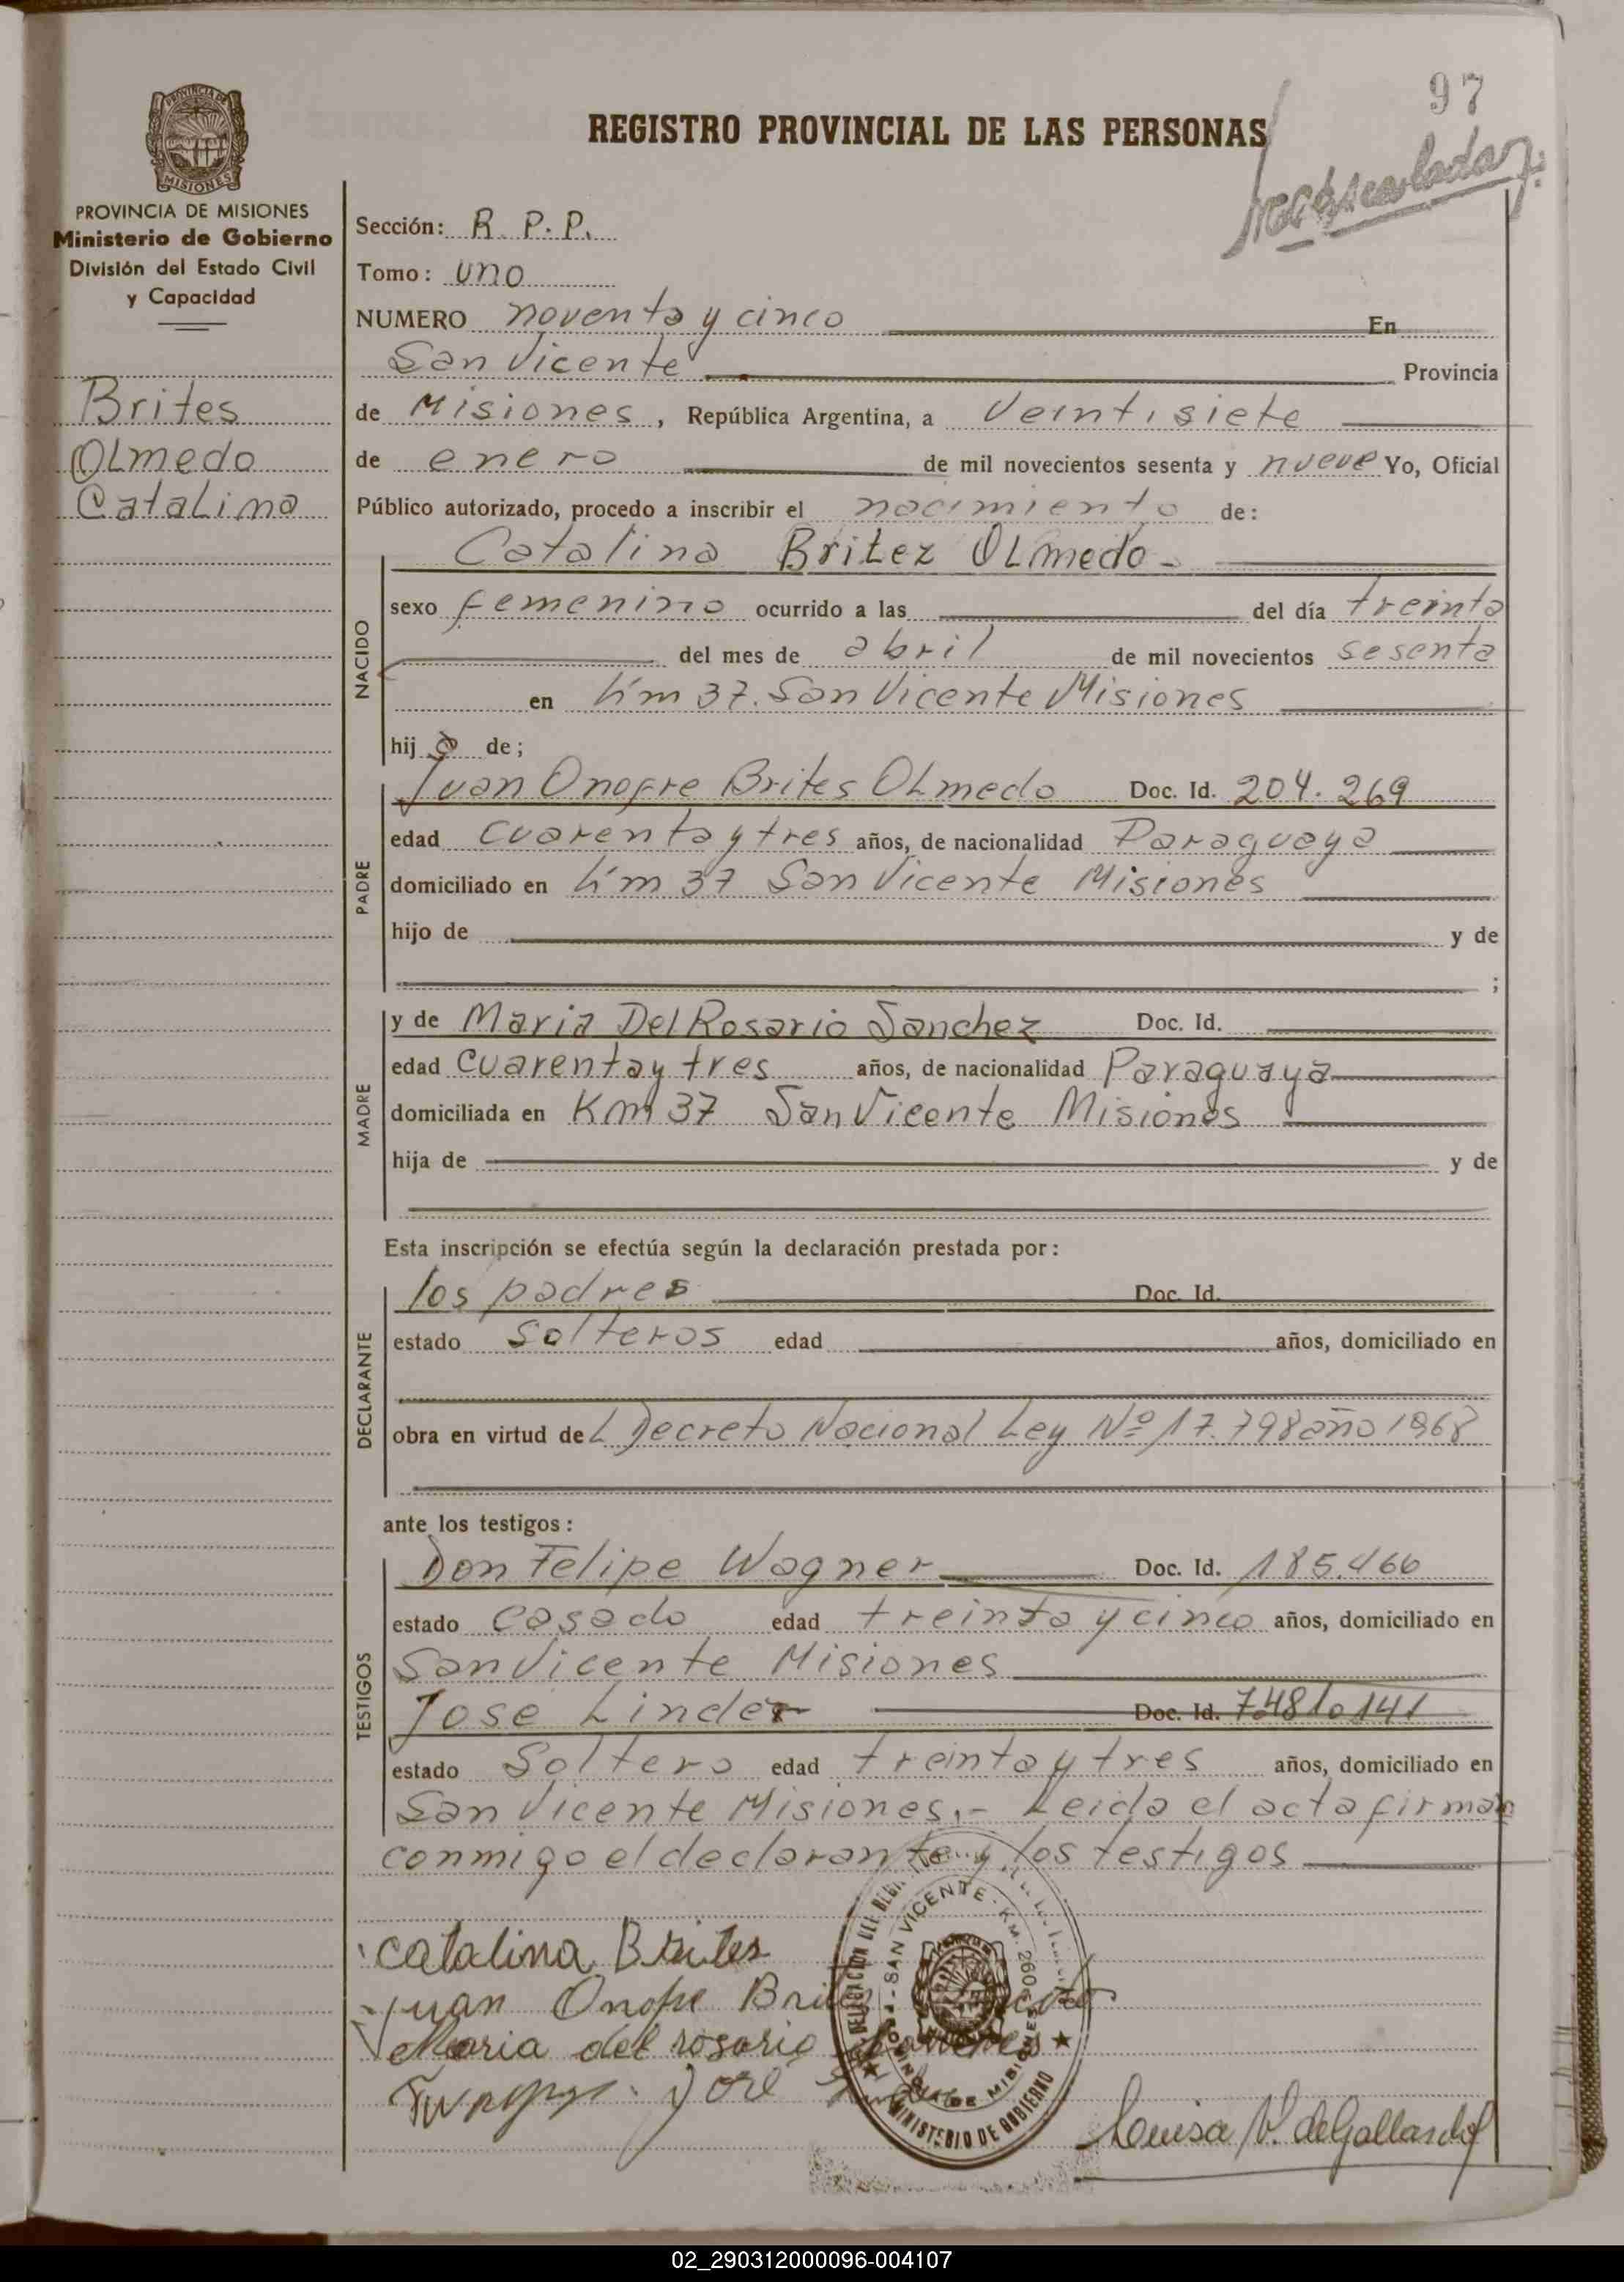 97
REGISTRO PROVINCIAL DE LAS PERSONAS
PROVINCIA DE
MISIONES
PROVINCIA DE MISIONES
Ministerio de Gobierno
División del Estado Civil
y Capacidad
Brites
Olmedo
Catalina
Sección: R. P. P.
Tomo: uno
NUMERO noventa y cinco En
San Vicente Provincia
de Misiones, República Argentina, a Veintisiete
de enero de mil novecientos sesenta y nueve Yo, Oficial
Público autorizado, procedo a inscribir el nacimiento de:
Catalina Britez Olmedo-
NACIDO
sexo femenino ocurrido a las del día treinta
del mes de abril de mil novecientos sesenta
en Km 37. San Vicente Misiones
hij de;
PADRE
Juan Onofre Brites Olmedo Doc. Id. 204.269
edad cuarenta y tres años, de nacionalidad Paraguaya
domiciliado en Km 37 San Vicente Misiones
hijo de y de
;
MADRE
y de Maria Del Rosario Sanchez Doc. Id.
edad cuarenta y tres años, de nacionalidad Paraguaya
domiciliada en Km 37 San Vicente Misiones
hija de y de
Esta inscripción se efectúa según la declaración prestada por:
DECLARANTE
los padres Doc. Id.
estado solteros edad años, domiciliado en
obra en virtud del Decreto Nacional Ley Nº 17.798 año 1968
ante los testigos:
TESTIGOS
Don Felipe Wagner Doc. Id. 185.466
estado casado edad treinta y cinco años, domiciliado en
San Vicente Misiones
Jose Linder Doc. Id. 7.481.0141
estado Soltero edad treinta y tres años, domiciliado en
San Vicente Misiones.- Leida el acta firman
conmigo el declarante y los testigos
Catalina Brites
Juan Onofre Brites
Maria del rosario
José
SAN VICENTE - KM. 260
MINISTERIO DE GOBIERNO
Luisa V. de Gallardo
02_290312000096-004107